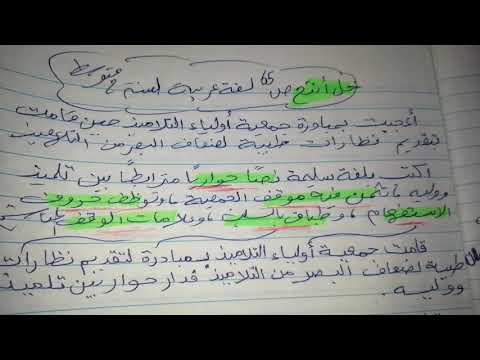 حل أنتج ص 65 لغة عربية لسنة 2 متوسط
أعجبت بمبادرة جمعية أولياء التلاميذ حين قامت
بتقديم نظارات طبية لضعاف البصر من التلاميذ
اكتب بلغة سليمة نصًا حواريًا مترابطًا بين تلميذ
ووليه يثمن فيه موقف الجمعية ووظف حروف
الاستفهام، وطباق السلب، وعلامات الوقف
قامت جمعية أولياء التلاميذ بمبادرة لتقديم نظارات
طبية لضعاف البصر من التلاميذ فدار حوار بين تلميذ
ووليه.